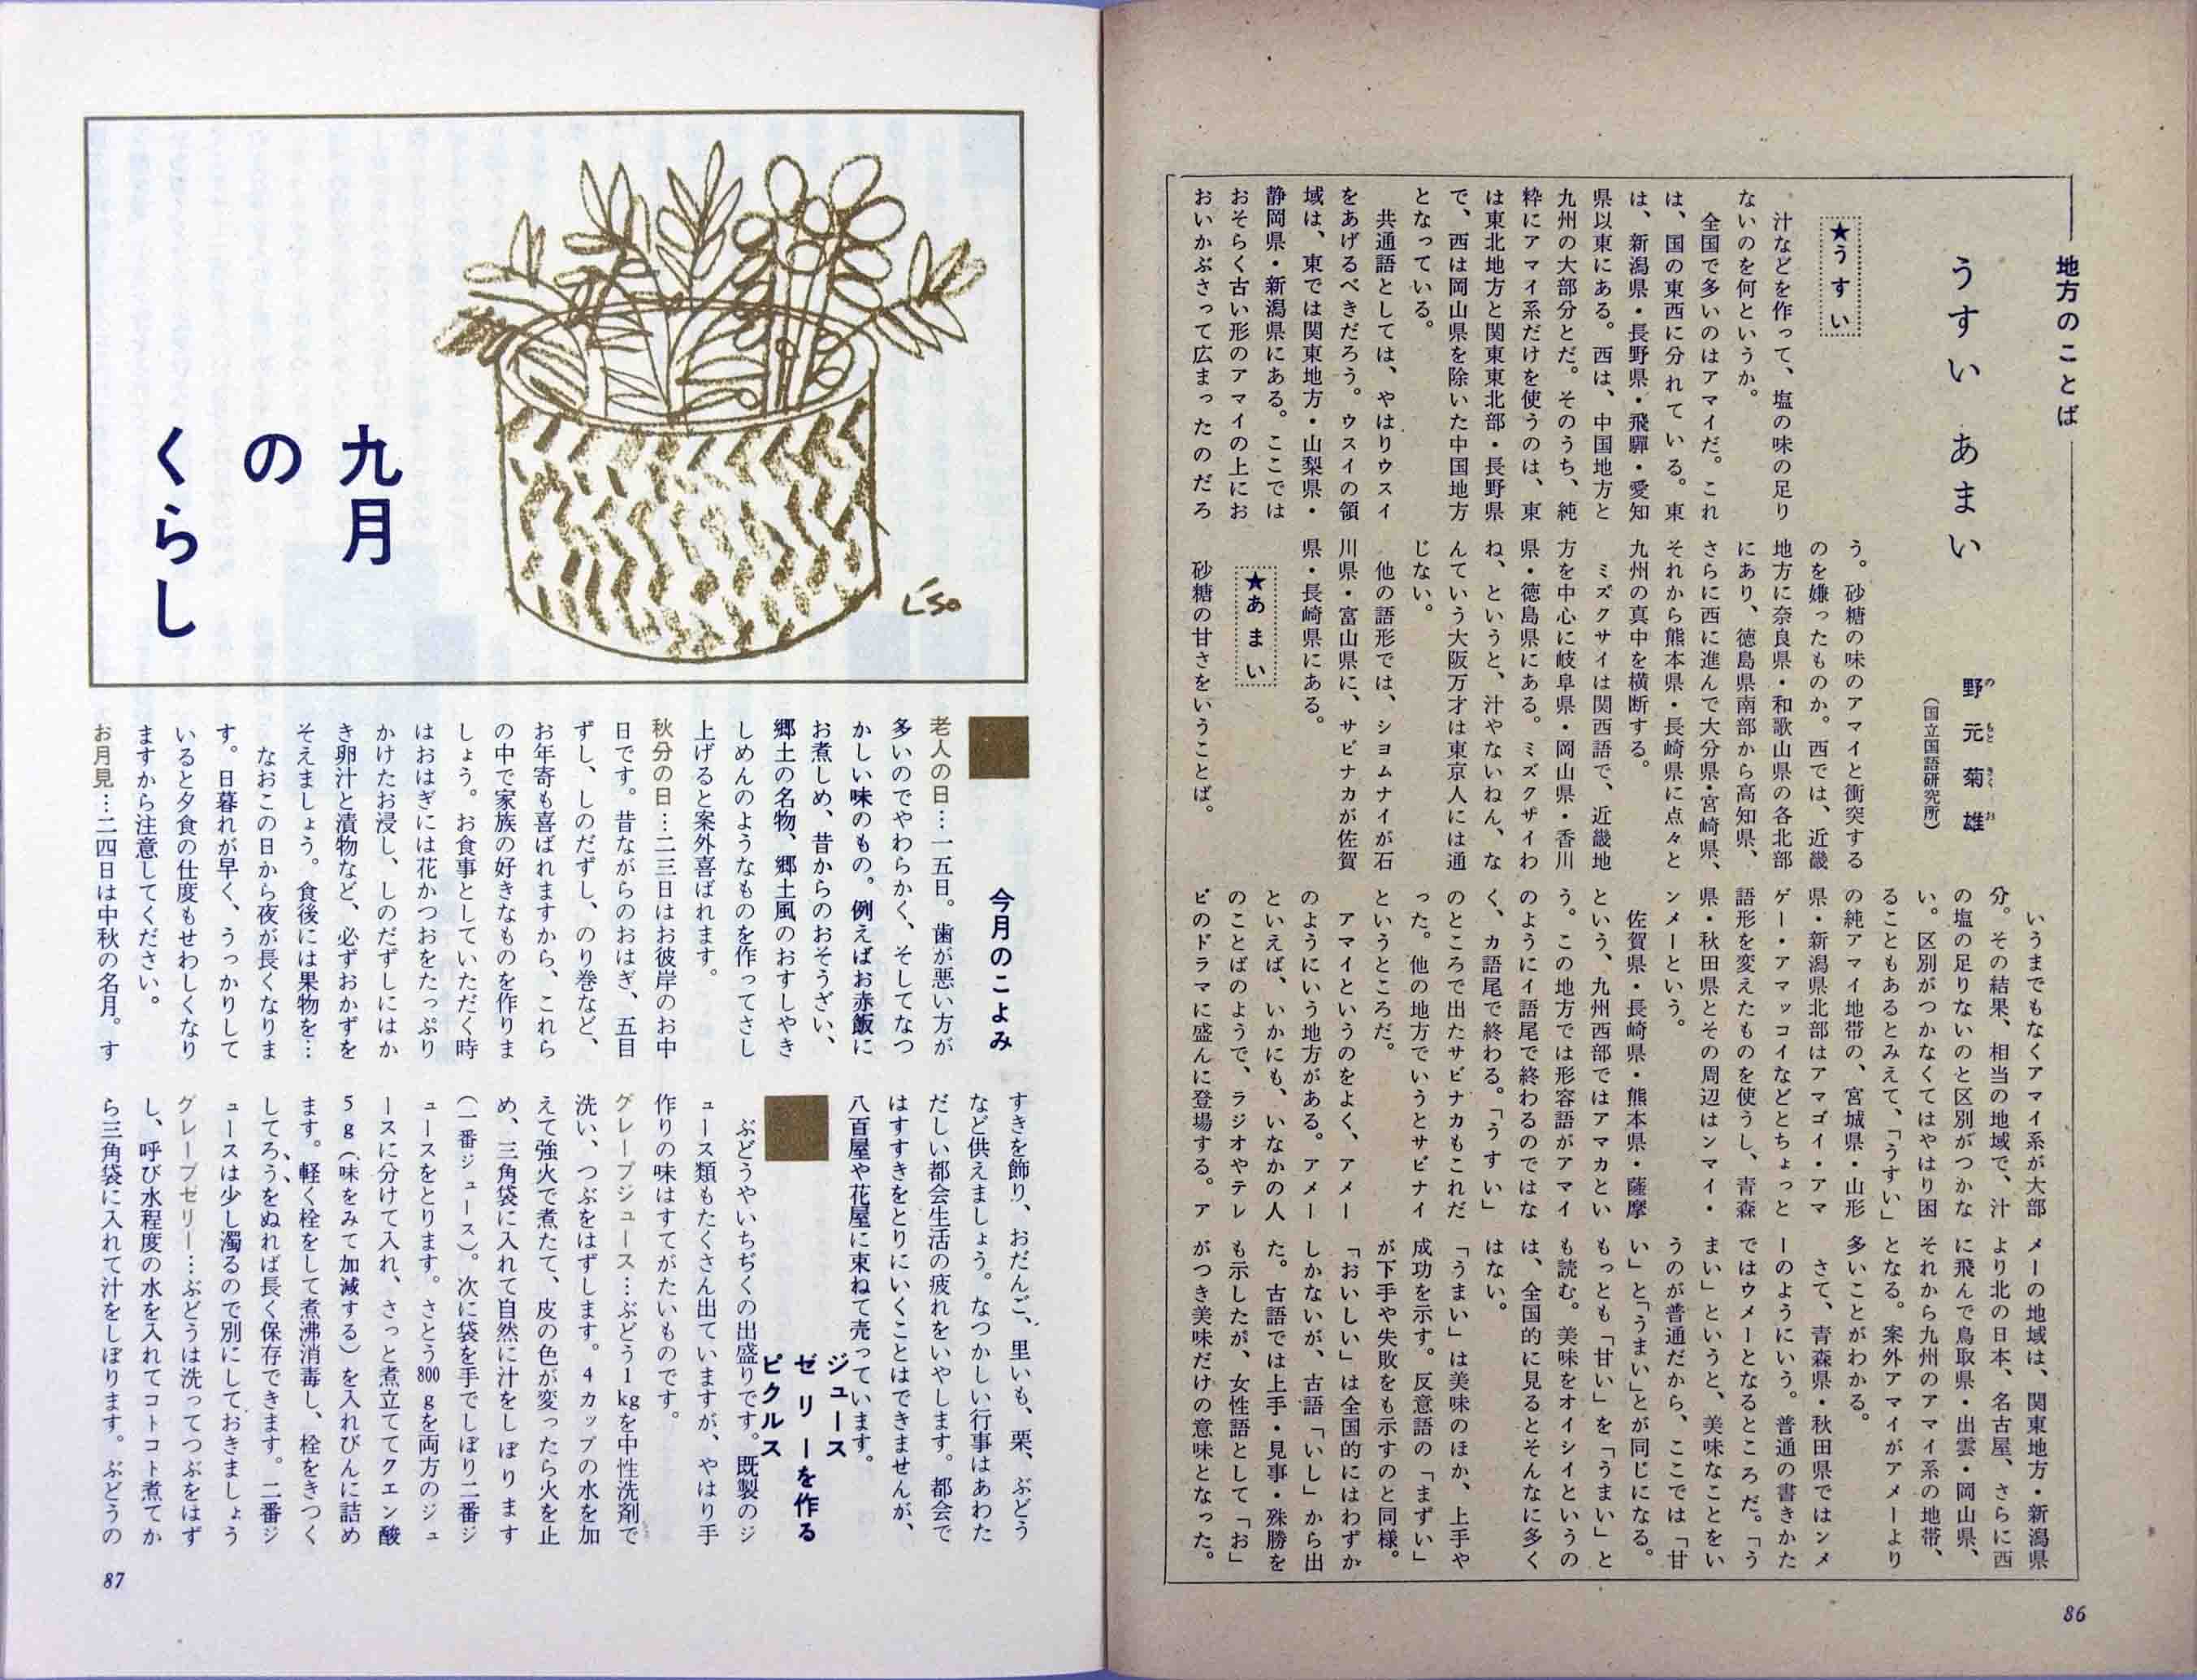 地方のことば
うすい あまい
野元菊雄
の もと きく お
(国立国語研究所)
★うすい
汁などを作って、塩の味の足り
ないのを何というか。
全国で多いのはアマイだ。これ
は、国の東西に分れている。東
は、新潟県・長野県・飛騨・愛知
県以東にある。西は、中国地方と
九州の大部分とだ。そのうち、純
粋にアマイ系だけを使うのは、東
は東北地方と関東東北部・長野県
で、西は岡山県を除いた中国地方
となっている。
共通語としては、やはりウスイ
をあげるべきだろう。ウスイの領
域は、東では関東地方・山梨県・
静岡県・新潟県にある。ここでは
おそらく古い形のアマイの上にお
おいかぶさって広まったのだろ
う。砂糖の味のアマイと衝突する
のを嫌ったものか。西では、近畿
地方に奈良県・和歌山県の各北部
にあり、徳島県南部から高知県、
さらに西に進んで大分県・宮崎県、
それから熊本県・長崎県に点々と
九州の真中を横断する。
ミズクサイは関西語で、近畿地
方を中心に岐阜県・岡山県・香川
県・徳島県にある。ミズクサイわ
ね、というと、汁やないねん、な
んていう大阪万才は東京人には通
じない。
他の語形では、ショムナイが石
川県・富山県に、サビナカが佐賀
県・長崎県にある。
★あまい
砂糖の甘さをいうことば。
いうまでもなくアマイ系が大部
分。その結果、相当の地域で、汁
の塩の足りないのと区別がつかな
い。区別がつかなくてはやはり困
ることもあるとみえて、「うすい」
の純アマイ地帯の、宮城県・山形
県・新潟県北部はアマゴイ・アマ
ゲー・アマッコイなどとちょっと
語形を変えたものを使うし、青森
県・秋田県とその周辺はンマイ・
ンメーという。
佐賀県・長崎県・熊本県・薩摩
という、九州西部ではアマカとい
う。この地方では形容語がアマイ
のようにイ語尾で終わるのではな
く、カ語尾で終わる。「うすい」
のところで出たサビナカもこれだ
った。他の地方でいうとサビナイ
というところだ。
アマイというのをよく、アメー
のようにいう地方がある。アメー
といえば、いかにも、いなかの人
のことばのようで、ラジオやテレ
ビのドラマに盛んに登場する。ア
メーの地域は、関東地方・新潟県
より北の日本、名古屋、さらに西
に飛んで鳥取県・出雲・岡山県、
それから九州のアマイ系の地帯、
となる。案外アマイがアメーより
多いことがわかる。
さて、青森県・秋田県ではンメ
ーのようにいう。普通の書きかた
ではウメーとなるところだ。「う
まい」というと、美味なことをい
うのが普通だから、ここでは「甘
い」と「うまい」とが同じになる。
もっとも「甘い」を「うまい」と
も読む。美味をオイシイというの
は、全国的に見るとそんなに多く
はない。
「うまい」は美味のほか、上手や
成功を示す。反意語の「まずい」
が下手や失敗をも示すのと同様。
「おいしい」は全国的にはわずか
しかないが、古語「いし」から出
た。古語では上手・見事・殊勝を
も示したが、女性語として「お」
がつき美味だけの意味となった。
86
九月
の
くらし
L'So
今月のこよみ
老人の日…一五日。歯が悪い方が
多いのでやわらかく、そしてなつ
かしい味のもの。例えばお赤飯に
お煮しめ、昔からのおそうざい、
郷土の名物、郷土風のおすしやき
しめんのようなものを作ってさし
上げると案外喜ばれます。
秋分の日…二三日はお彼岸のお中
日です。昔ながらのおはぎ、五目
ずし、しのだずし、のり巻など、
お年寄も喜ばれますから、これら
の中で家族の好きなものを作りま
しょう。お食事としていただく時
はおはぎには花かつおをたっぷり
かけたお浸し、しのだずしにはか
き卵汁と漬物など、必ずおかずを
そえましょう。食後には果物を…
なおこの日から夜が長くなりま
す。日暮れが早く、うっかりして
いると夕食の仕度もせわしくなり
ますから注意してください。
お月見…二四日は中秋の名月。す
すきを飾り、おだんご、里いも、栗、ぶどう
など供えましょう。なつかしい行事はあわた
だしい都会生活の疲れをいやします。都会で
はすすきをとりにいくことはできませんが、
八百屋や花屋に束ねて売っています。
ジュース
ゼリーを作る
ピクルス
ぶどうやいちぢくの出盛りです。既製のジ
ュース類もたくさん出ていますが、やはり手
作りの味はすてがたいものです。
グレープジュース…ぶどう1kgを中性洗剤で
洗い、つぶをはずします。4カップの水を加
えて強火で煮たて、皮の色が変ったら火を止
め、三角袋に入れて自然に汁をしぼります
(一番ジュース)。次に袋を手でしぼり二番ジ
ュースをとります。さとう800gを両方のジュ
ースに分けて入れ、さっと煮立ててクエン酸
5g(味をみて加減する)を入れびんに詰め
ます。軽く栓をして煮沸消毒し、栓をきつく
してろうをぬれば長く保存できます。二番ジ
ュースは少し濁るので別にしておきましょう
グレープゼリー…ぶどうは洗ってつぶをはず
し、呼び水程度の水を入れてコトコト煮てか
ら三角袋に入れて汁をしぼります。ぶどうの
87